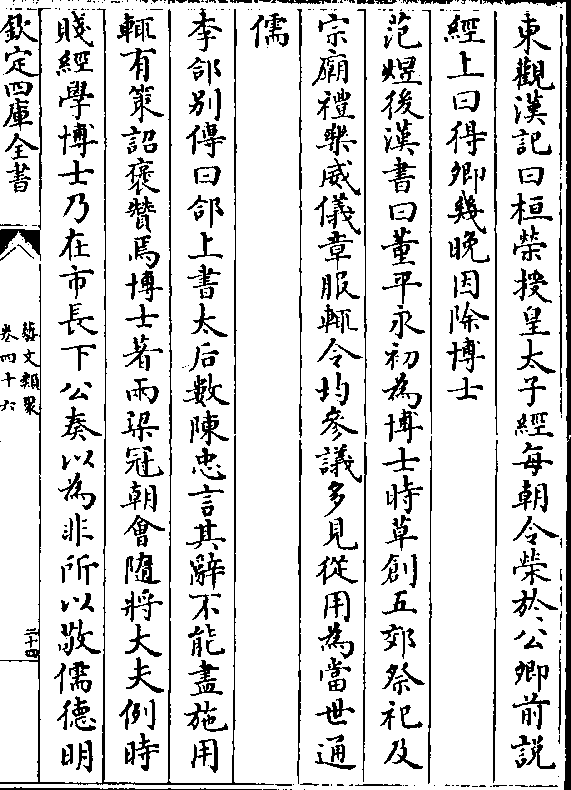 東觀漢記曰桓榮授皇太子經每朝令榮於公卿前説
經上曰得卿幾晚因除博士
范煜後漢書曰董平永初為博士時草創五郊祭祀及
宗廟禮樂威儀章服輒令均參議多見從用為當世通
儒
李郃别傳曰郃上書太后數陳忠言其辭不能盡施用
輒有策詔襃贊焉博士著兩梁冠朝會隨將大夫例時
賤經學博士乃在市長下公奏以為非所以敬儒德明
欽定四庫全書
藝文類聚
卷四十六
二十四